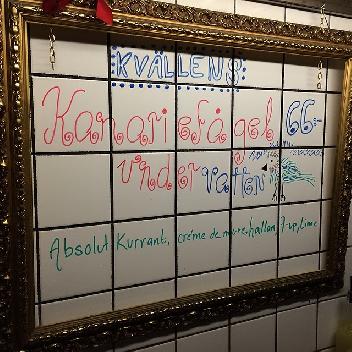 KVÄLLENS
Kanariefågel 66:-
under vatten
Absolut Kurrant, créme de menthe, hallon, 7-up, lime